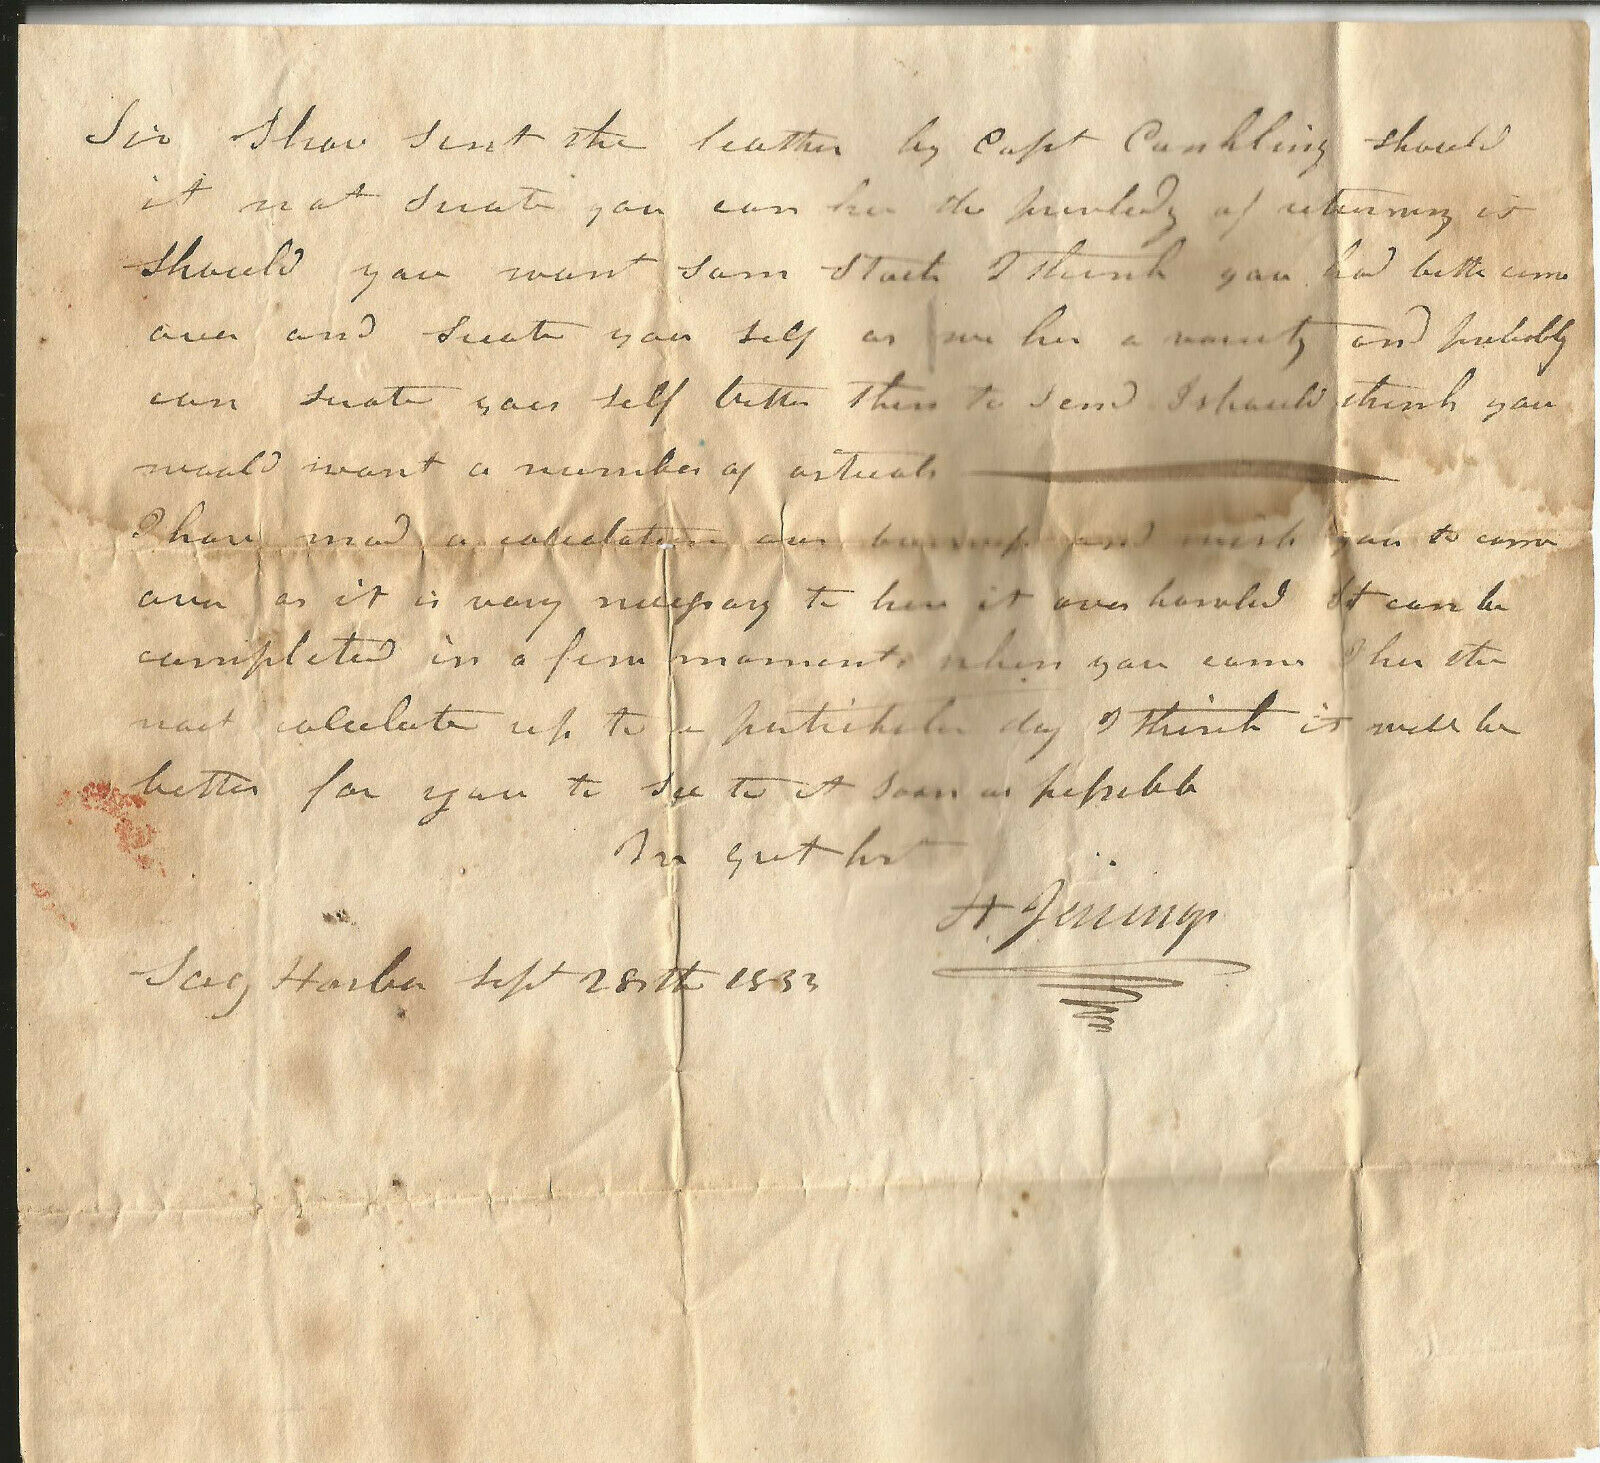 Sir I have sent the leather by Capt Conkling should
it not suate you can hav the priviledg of returning it
should you want som stock I think you had bette come
over and suate you self as we hav a variety and probably
can suate your self better then to send I should think you
would want a number of articals
I have mad a calculation our and wish you to come
over as it is very necessary to have it over hawled It can be
completed in a few moments when you come I hav the
not calculate up to a particheler day I think it will be
better for you to see to it soon as possible
In
H. Jenings
Sag Harbor Sept 28th 1833